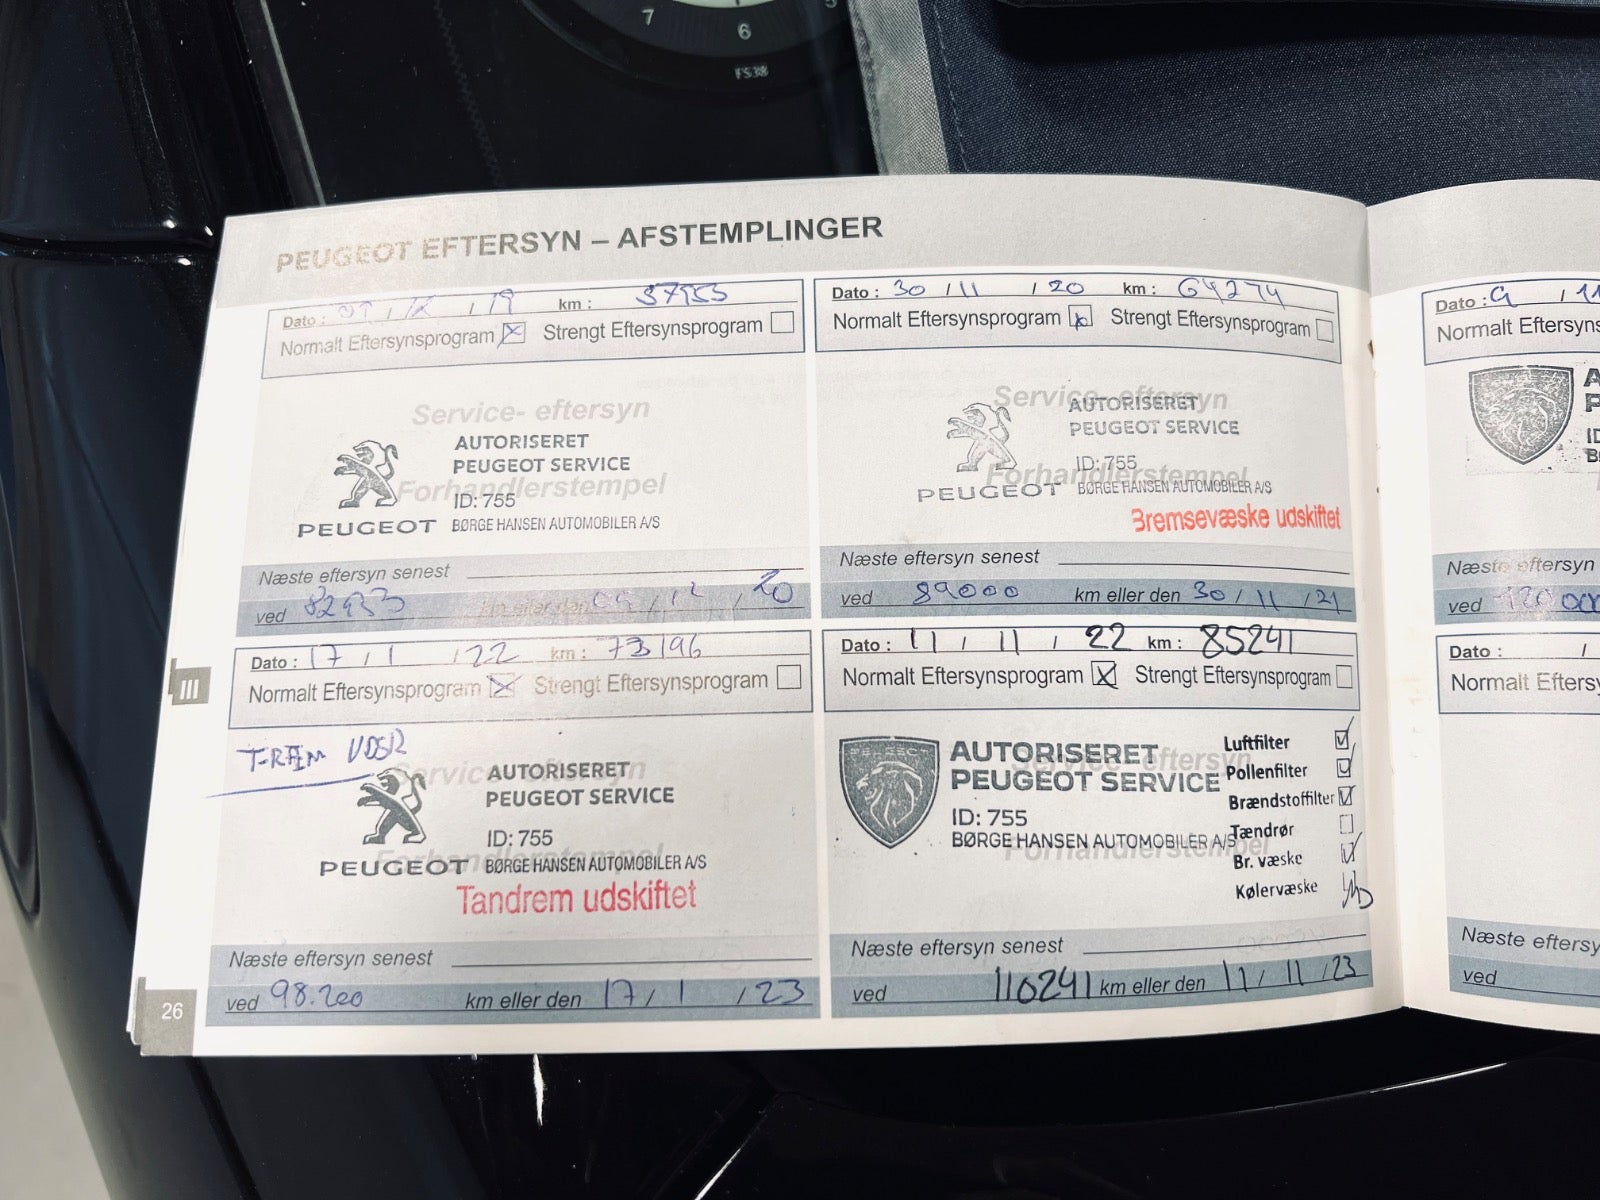 7 6 5
FS38
PEUGEOT EFTERSYN – AFSTEMPLINGER
Dato : / 19 km : 57953
Normalt Eftersynsprogram ☒ Strengt Eftersynsprogram ☐
Service- eftersyn
AUTORISERET
PEUGEOT SERVICE
Forhandlerstempel
ID: 755
PEUGEOT BØRGE HANSEN AUTOMOBILER A/S
Næste eftersyn senest
ved 82953 km eller den / 12 / 20
Dato : 30 / 11 / 20 km : 64274
Normalt Eftersynsprogram ☒ Strengt Eftersynsprogram ☐
Service- eftersyn
AUTORISERET
PEUGEOT SERVICE
ID: 755
Forhandlerstempel
PEUGEOT BØRGE HANSEN AUTOMOBILER A/S
Bremsevæske udskiftet
Næste eftersyn senest
ved 89000 km eller den 30 / 11 / 21
Dato : 17 / 1 / 22 km : 73196
Normalt Eftersynsprogram ☒ Strengt Eftersynsprogram ☐
T-REM UDSK
Service- eftersyn
AUTORISERET
PEUGEOT SERVICE
ID: 755
Forhandlerstempel
PEUGEOT BØRGE HANSEN AUTOMOBILER A/S
Tandrem udskiftet
Næste eftersyn senest
ved 98.200 km eller den 17 / 1 / 23
Dato : 11 / 11 / 22 km : 85241
Normalt Eftersynsprogram ☒ Strengt Eftersynsprogram ☐
PEUGEOT
Service- eftersyn
AUTORISERET
PEUGEOT SERVICE
ID: 755
BØRGE HANSEN AUTOMOBILER A/S
Forhandlerstempel
Luftfilter ☑
Pollenfilter ☑
Brændstoffilter ☑
Tændrør ☐
Br. væske ☑
Kølervæske
Næste eftersyn senest
ved 110241 km eller den 11 / 11 / 23
III
26
Dato : 9 / 11
Normalt Eftersyns
A
P
ID
B
Næste eftersyn
ved 120.000
Dato : /
Normalt Eftersy
Næste eftersy
ved